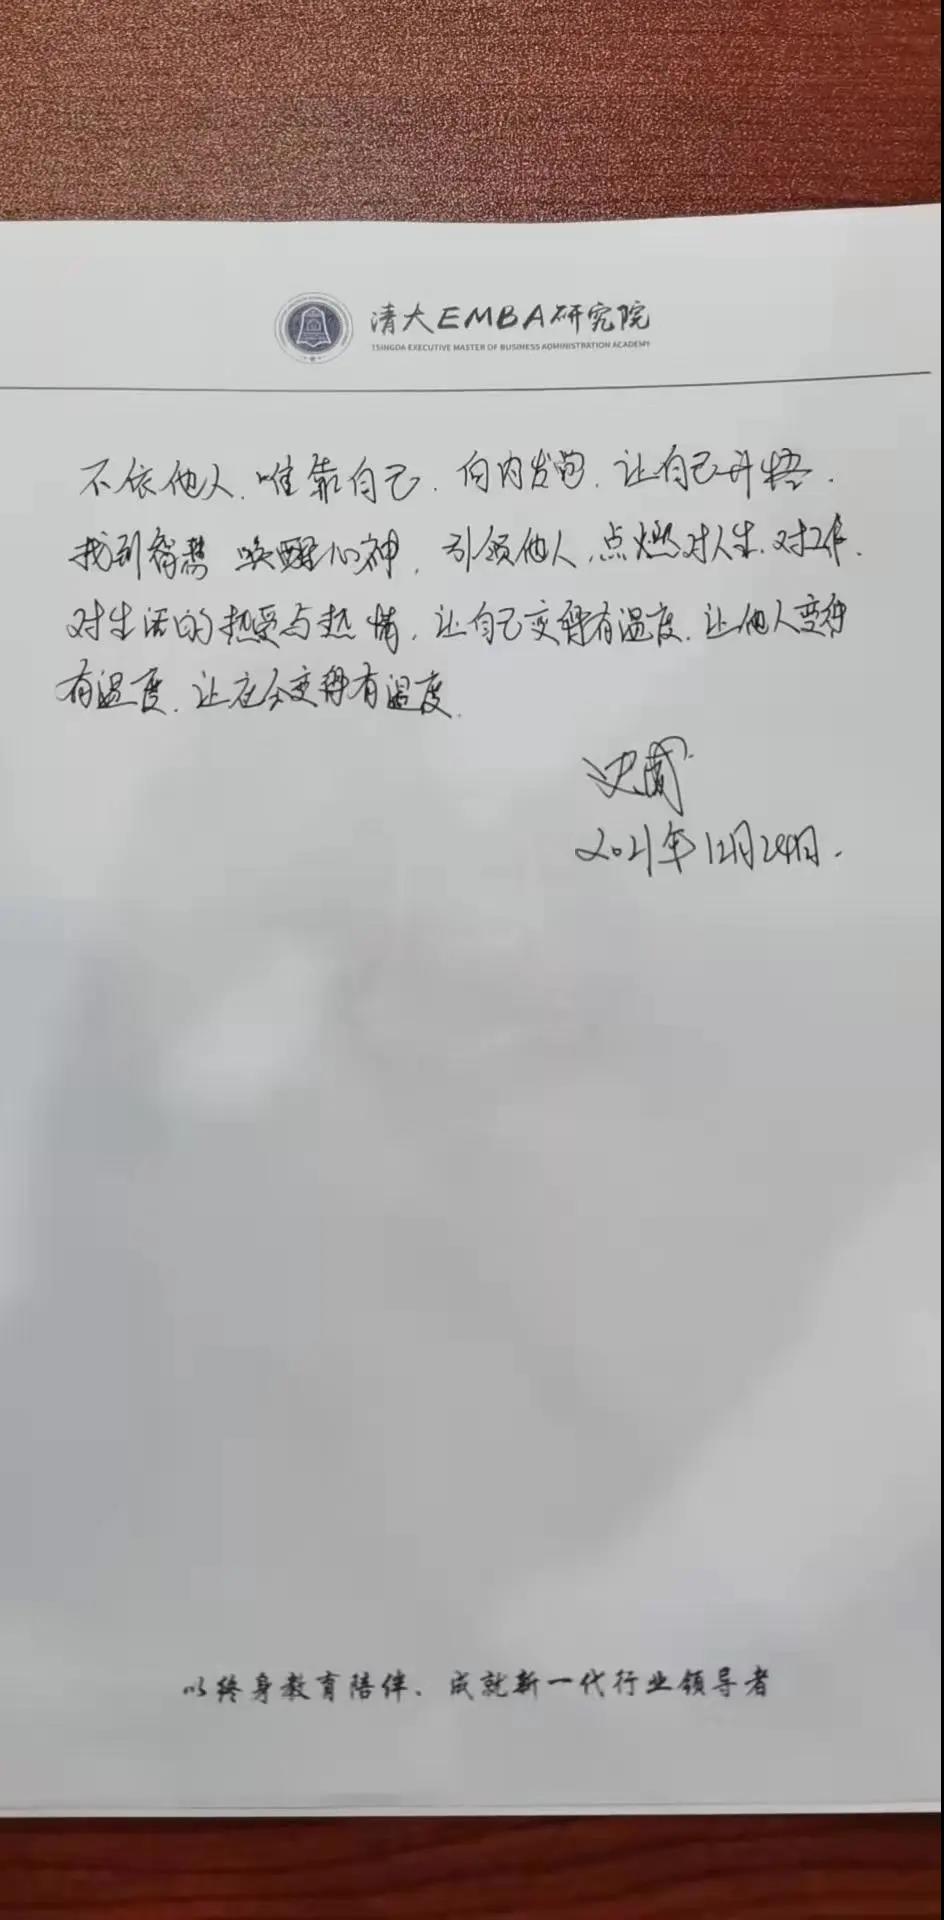 清大EMBA研究院
TSINGDA EXECUTIVE MASTER OF BUSINESS ADMINISTRATION ACADEMY
不依他人、唯靠自己、向内发电、让自己开悟、
找到智慧 唤醒心神，引领他人、点燃对人生、对工作、
对生活的热爱与热情，让自己变得有温度、让他人变得
有温度、让在今变得有温度
2021年12月24日.
以终身教育陪伴、成就新一代行业领导者